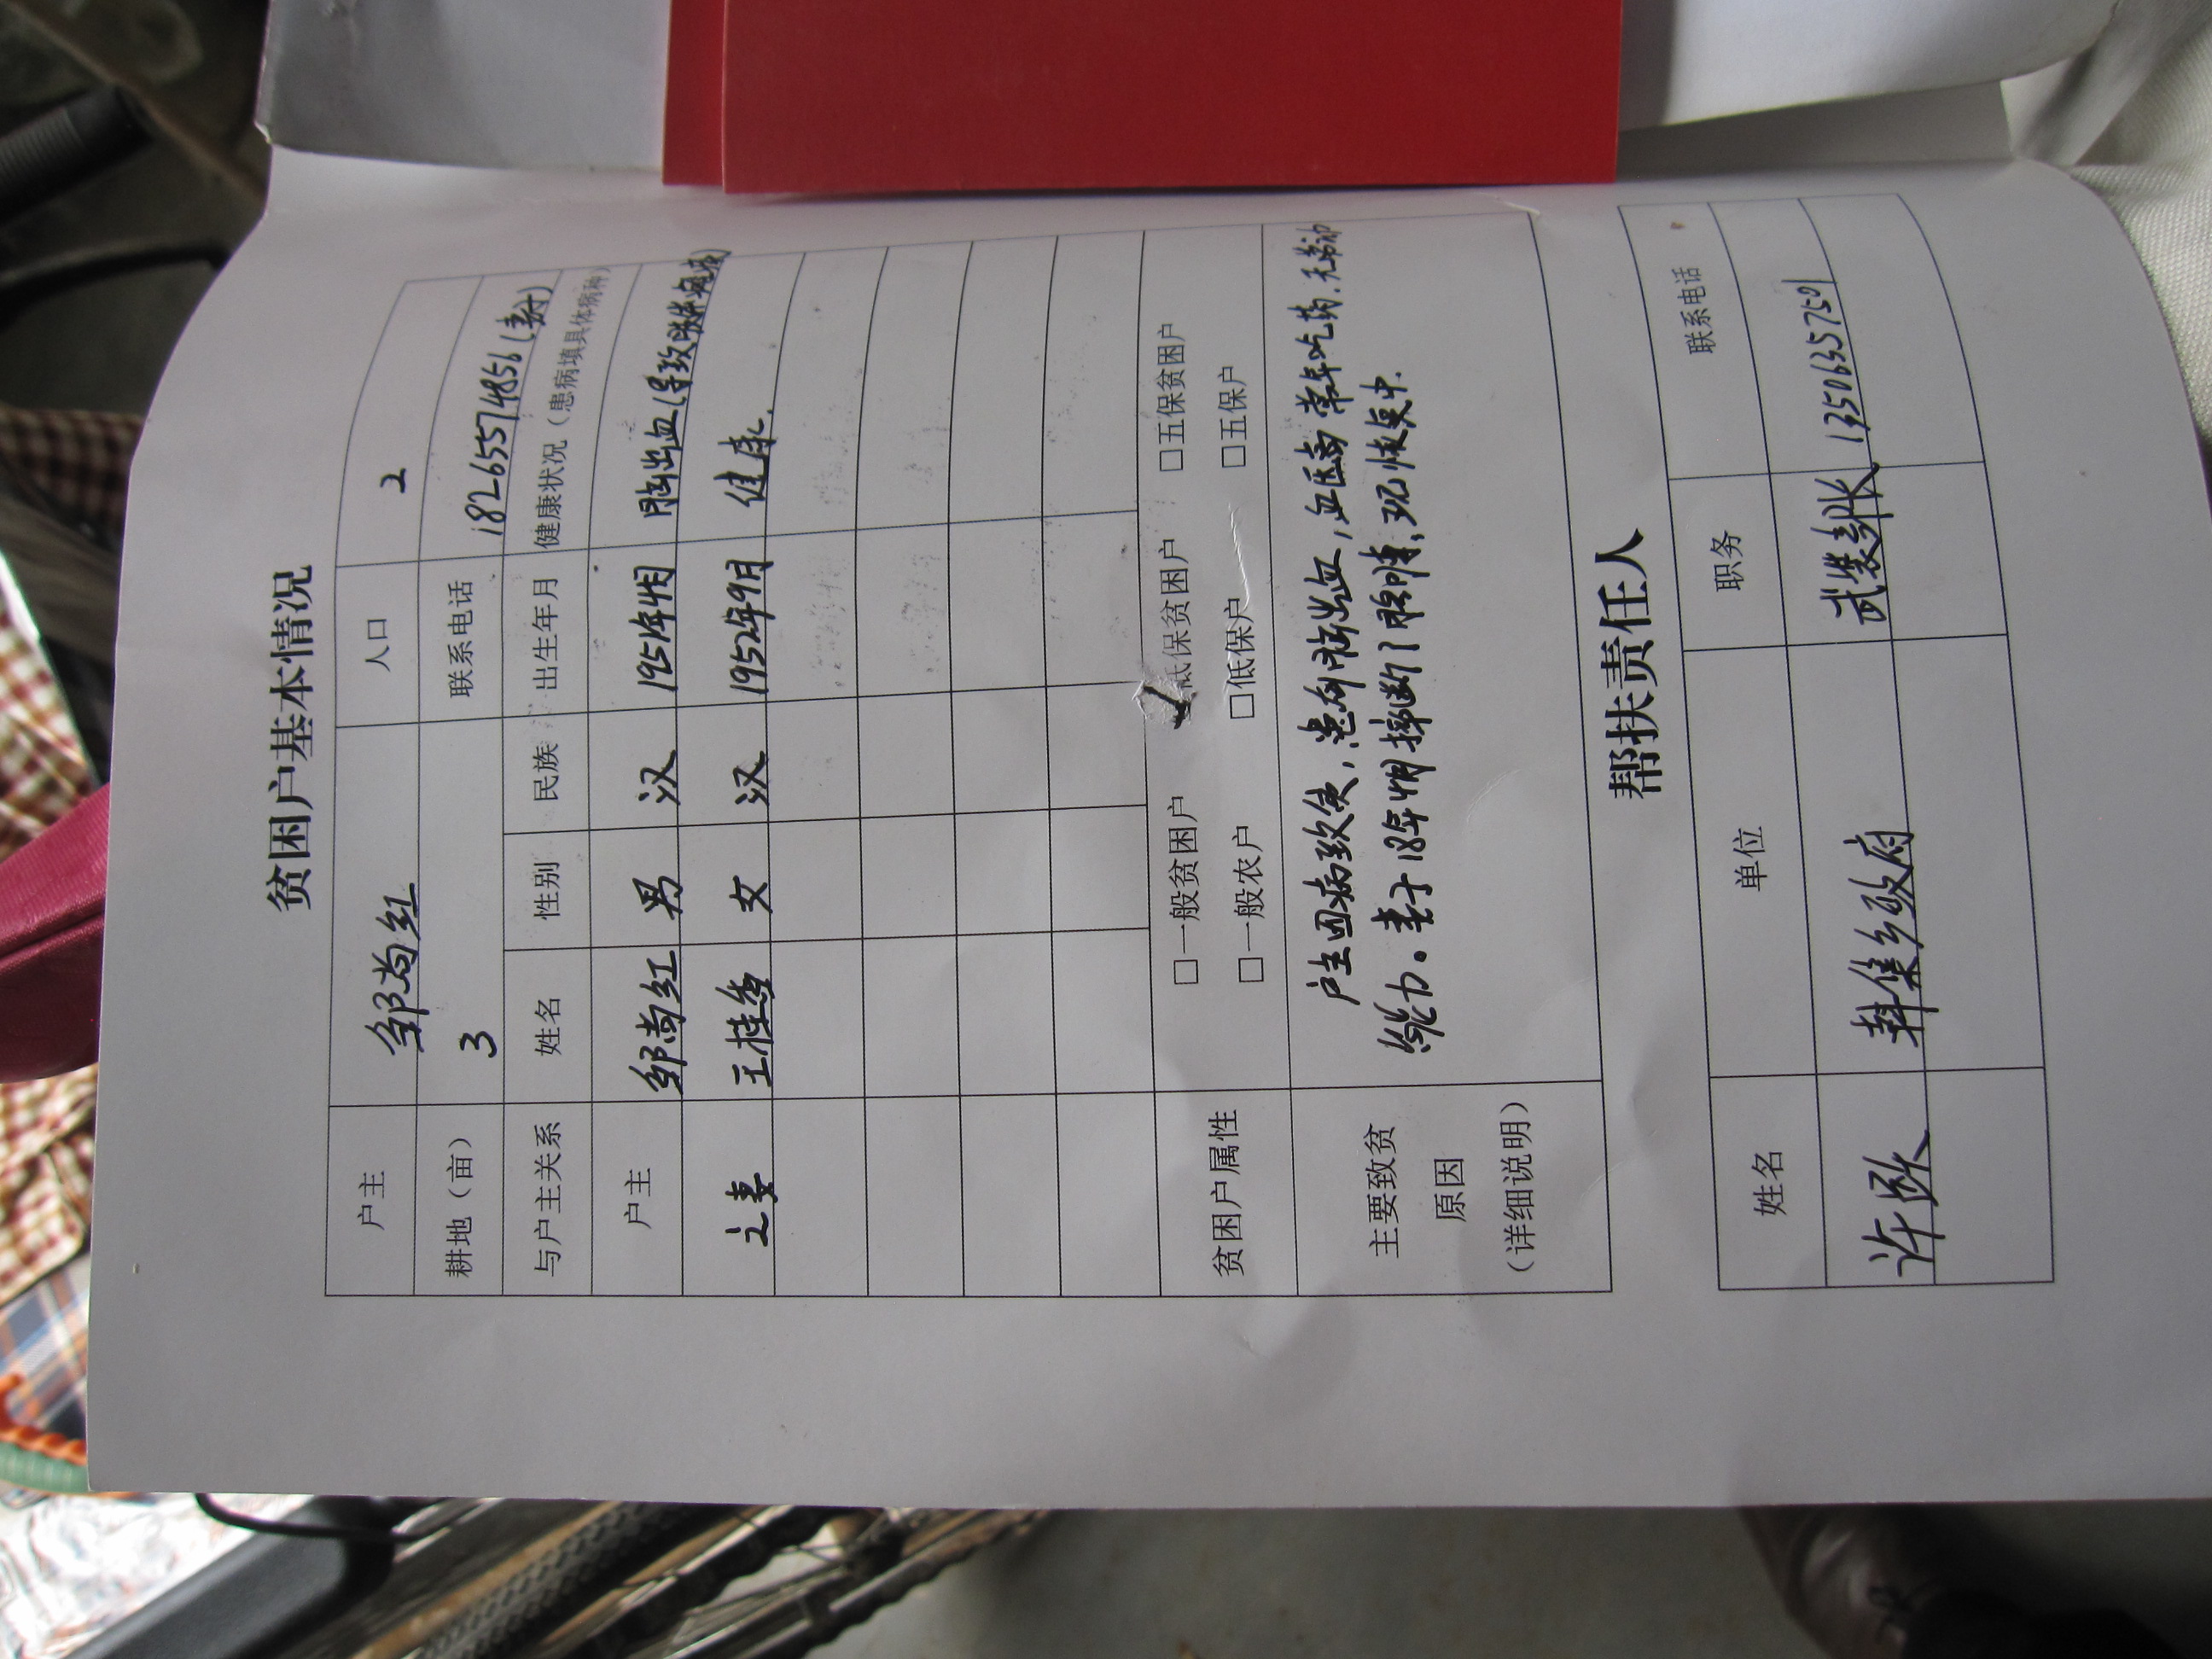 贫困户基本情况
户主 邹尚红 人口 2
耕地（亩） 3 联系电话 18265574856（妻子）
与户主关系 姓名 性别 民族 出生年月 健康状况（患病填具体病种）
户主 邹尚红 男 汉 1951年4月 脑出血（导致
之妻 王桂香 女 汉 1952年9月 健康.
贫困户属性 □一般贫困户 ✓低保贫困户 □五保贫困户
□一般农户 □低保户 □五保户
主要致贫
原因
（详细说明）
户主因病致贫，患有脑出血，血压高常年吃药.无劳动
能力。妻子18年4月摔断了 现恢复中.
帮扶责任人
姓名 单位 职务 联系电话
许 集乡政府 武装部长 13506357501